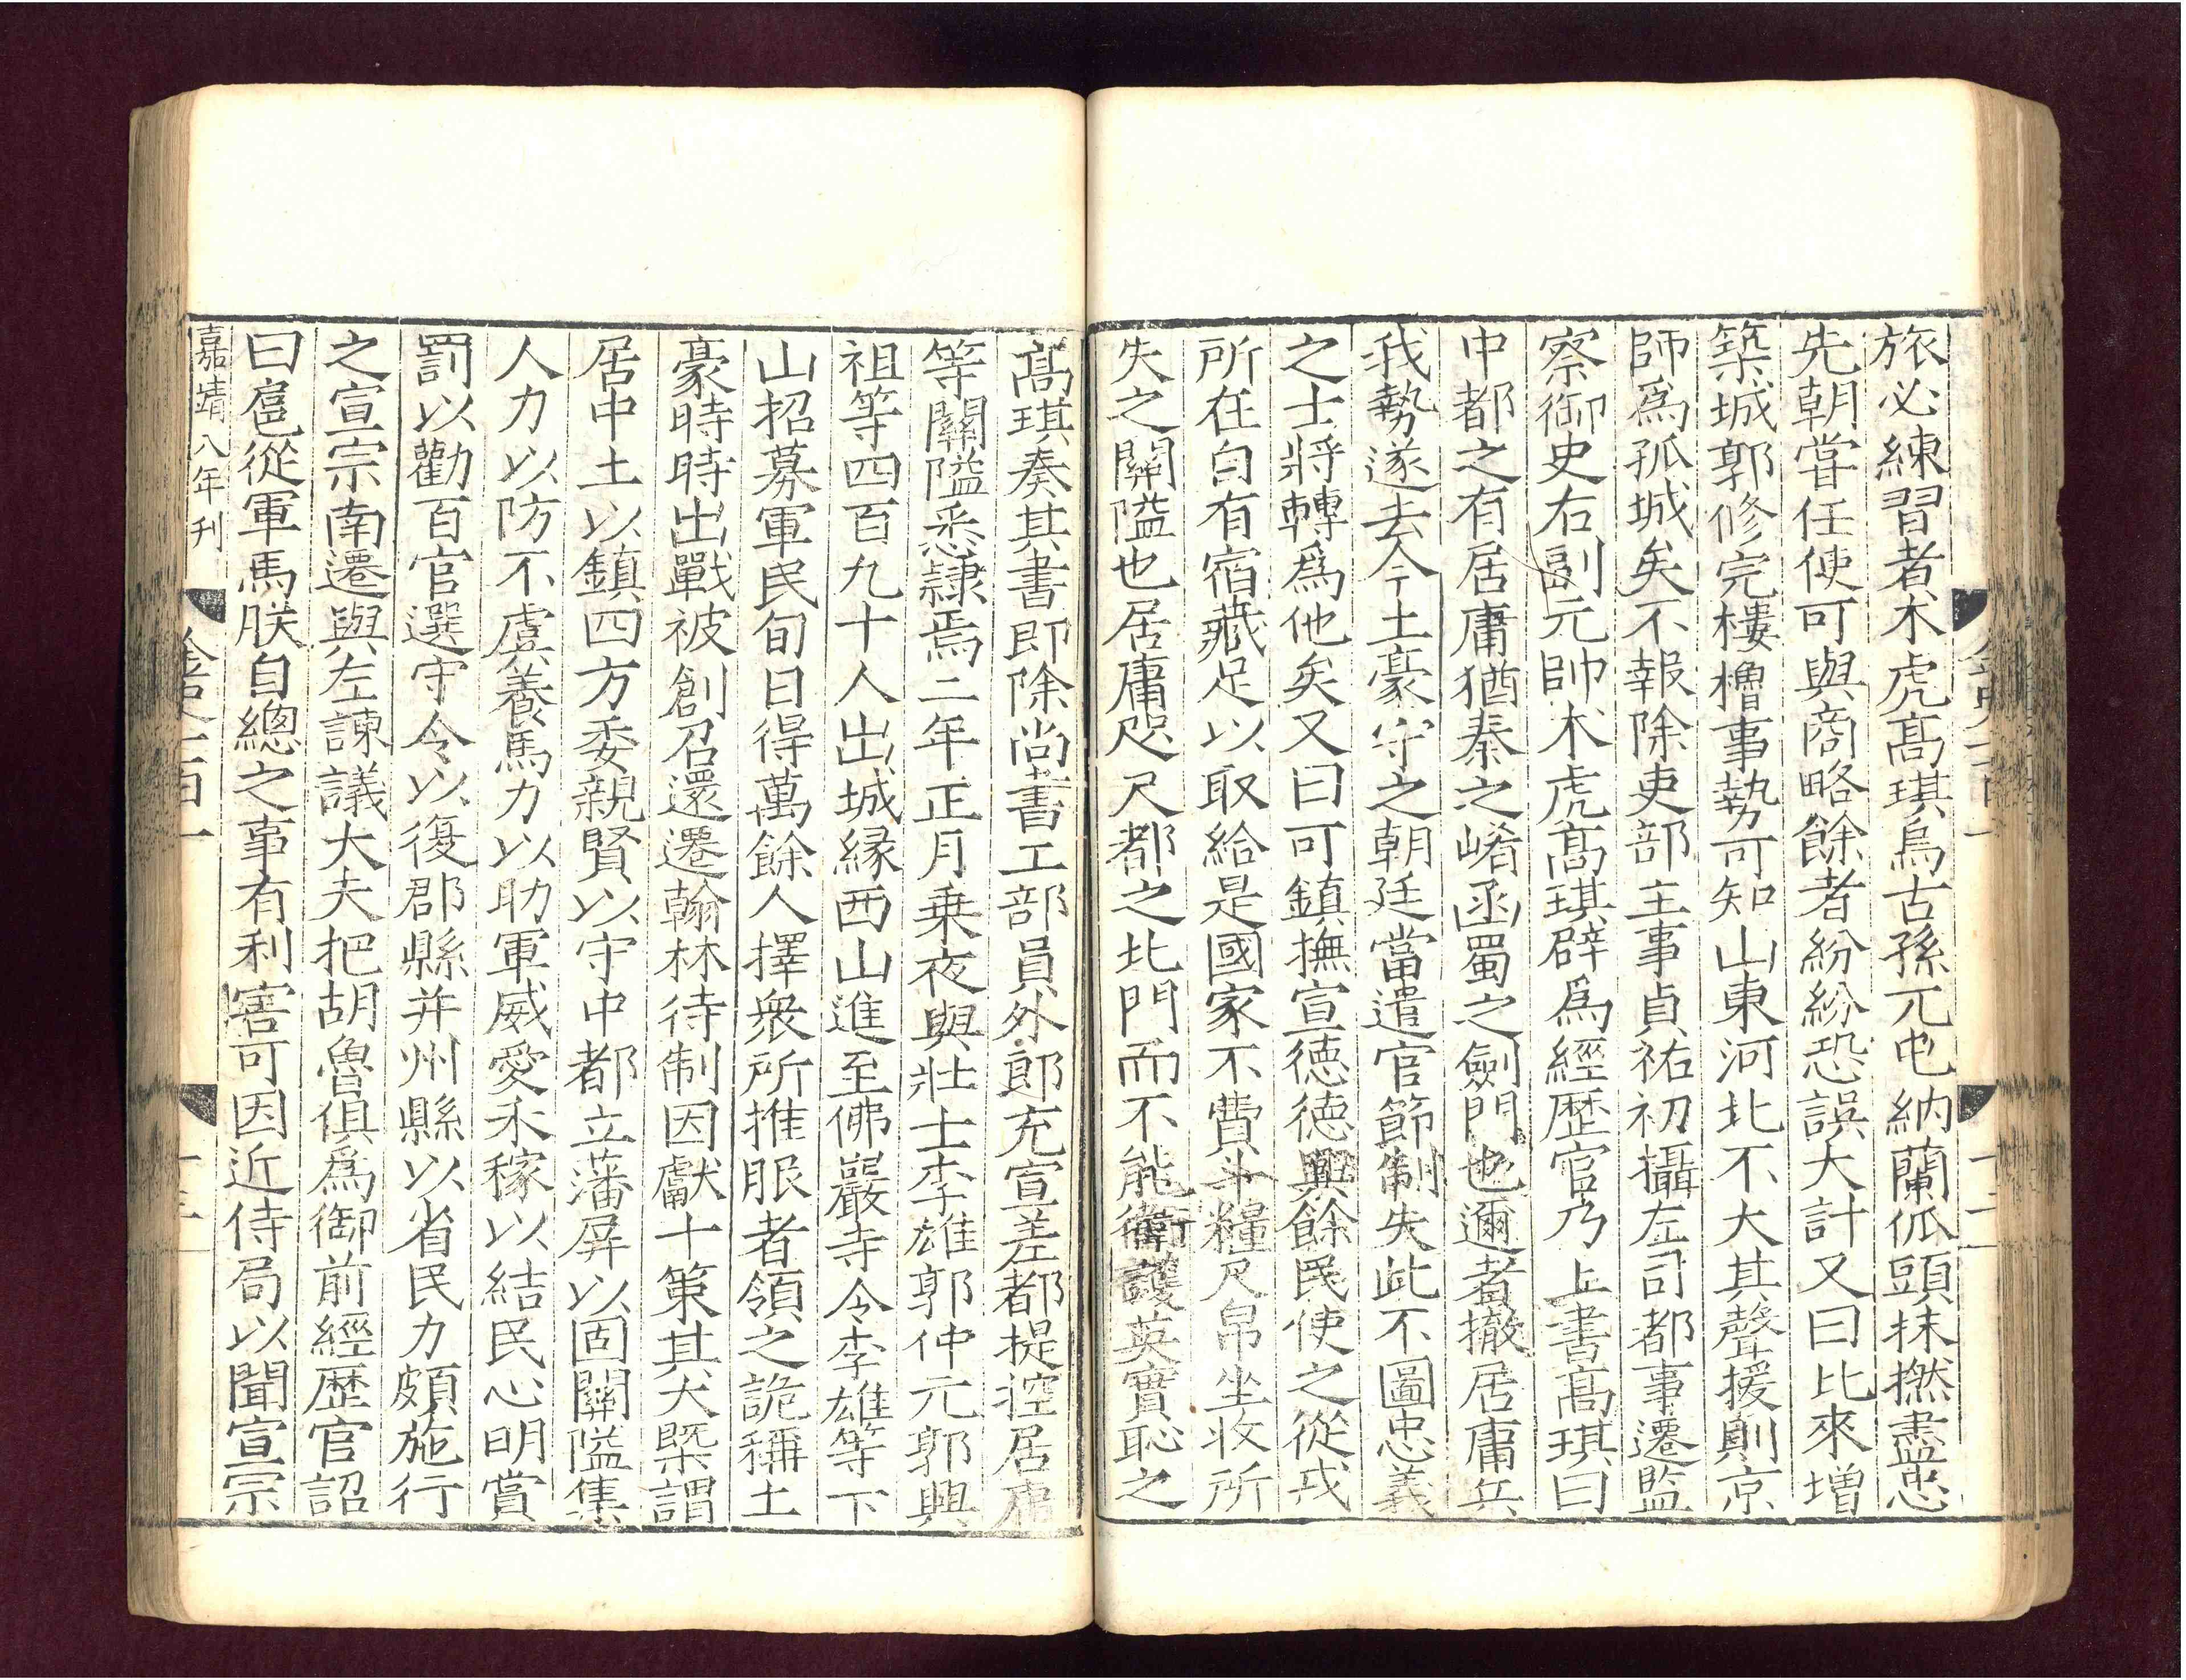 旅必練習者朮虎高琪烏古孫兀屯納蘭㐲頭抹撚盡忠
先朝嘗任使可與商略餘者紛紛恐誤大計又曰比來增
築城郭修完樓櫓事勢可知山東河北不大其聲援則京
師爲孤城矣不報除吏部主事貞祐初攝左司都事遷監
察御史右副元帥朮虎高琪辟爲經歷官乃上書高琪曰
中都之有居庸猶秦之崤函蜀之劍門也邇者撤居庸兵
我勢遂去今土豪守之朝廷當遣官節制失此不圖忠義
之士將轉爲他矣又曰可鎮撫宣德德興餘民使之從戎
所在自有宿藏足以取給是國家不費斗糧尺帛坐收所
失之關隘也居庸咫尺都之北門而不能衛護英實恥之
高琪奏其書即除尚書工部員外郎充宣差都提控居庸
等關隘悉隸焉二年正月乗夜與壯士李雄郭仲元郭興
祖等四百九十人出城緣西山進至佛巖寺令李雄等下
山招募軍民旬日得萬餘人擇衆所推服者領之詭稱土
豪時時出戰被創召還遷翰林待制因獻十策其大槩謂
居中土以鎮四方委親賢以守中都立藩屏以固關隘集
人力以防不虞養馬力以助軍威愛禾稼以結民心明賞
罰以勸百官選守令以復郡縣并州縣以省民力頗施行
之宣宗南遷與左諫議大夫把胡魯俱爲御前經歷官詔
曰扈從軍馬朕自總之事有利害可因近侍局以聞宣宗
嘉靖八年刊
金史一百一